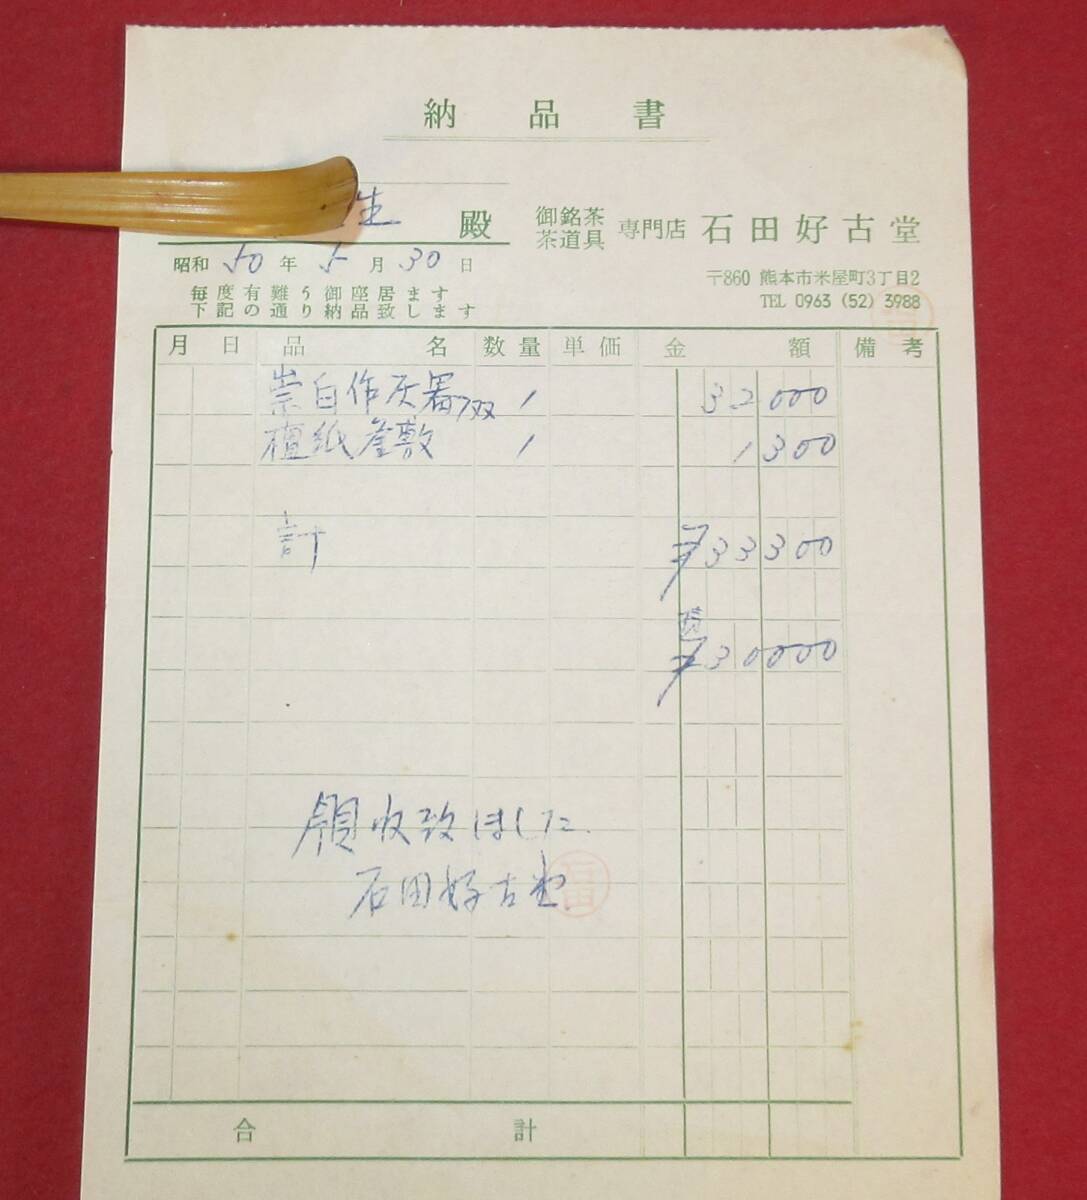 納品書
生 殿
御銘茶
茶道具 専門店 石田好古堂
昭和 50 年 5 月 30 日
〒860 熊本市米屋町3丁目2
TEL 0963 (52) 3988
毎度有難う御座居ます
下記の通り納品致します
月 日 品 名 数量 単価 金 額 備考
自作灰器 1 32000
檀紙釜敷 1 1300
計 ¥33300
¥30000
領収致しました
石田好古堂
合 計